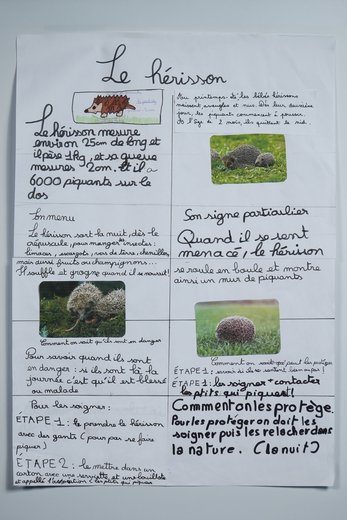 Le hérisson
Le hérisson mesure
environ 25cm de long et
il pèse 1Kg, et sa queue
mesures 2cm. Et il a
6000 piquants sur le
dos
Au printemps les bébés hérissons
naissent aveugles et nus. Dès leur deuxième
jour, les piquants commencent à pousser.
À l'âge de 2 mois, ils quittent le nid.
Son menu
Le hérisson sort la nuit, dès le
crépuscule, pour manger les insectes:
limaces, escargots, vers de terre, chenilles,
mais aussi fruits ou champignons...
Il souffle et grogne quand il se nourrit!
Son signe particulier
Quand il se sent
menacé, le hérisson
se roule en boule et montre
ainsi un mur de piquants
Comment on voit qu'ils sont en danger
Pour savoir quand ils sont
en danger : si ils sont là la
journée c'est qu'il est blessé
ou malade
Comment on peut les protéger
ÉTAPE 1:
ÉTAPE 1: les soigner + contacter
les ptits qui piquent!
Pour les soigner:
ÉTAPE 1: le prendre le hérisson
avec des gants (pour pas se faire
piquer)
ÉTAPE 2: le mettre dans un
carton avec une serviette et une bouillotte
et appeller l'association les ptits qui piquent
Comment on les protège.
Pour les protéger on doit les
soigner puis les relacher dans
la nature. (la nuit)